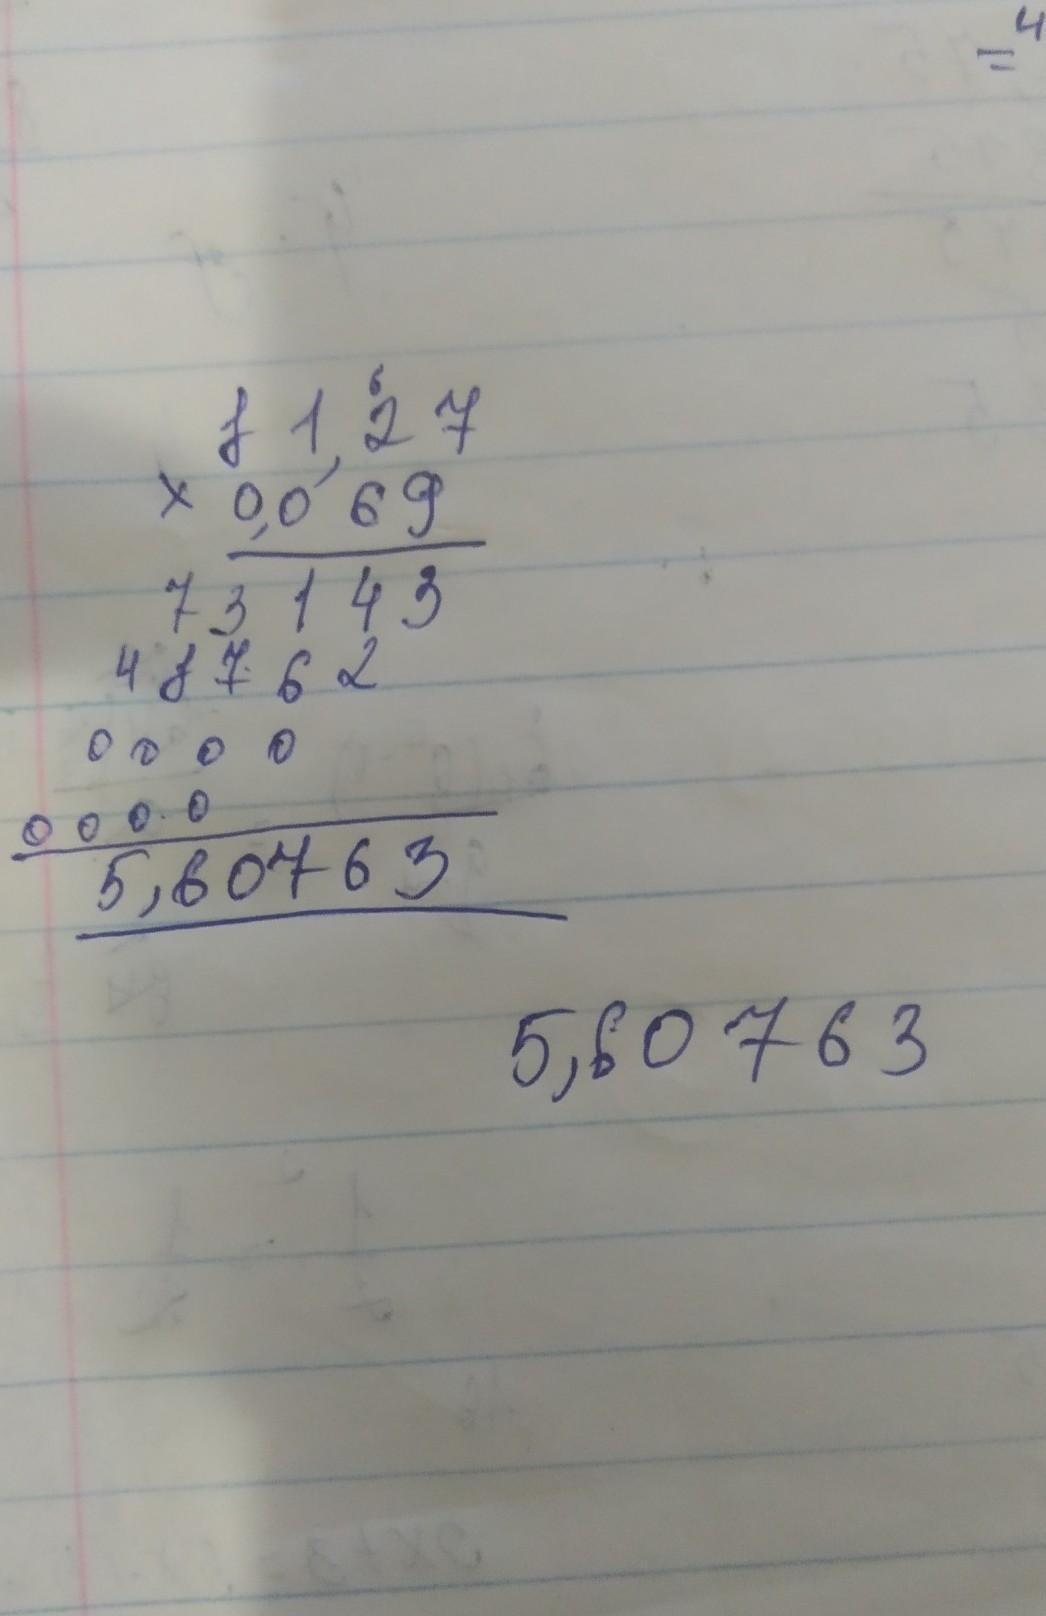 = 4
6
81,27
x 0,069
73143
48762
0000
0000
5,60763
5,60763